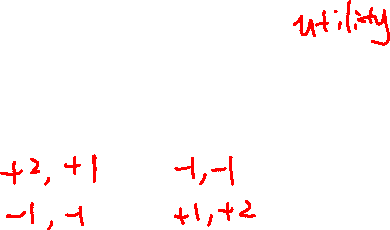 utility
+2, +1 -1, -1
-1, -1 +1, +2